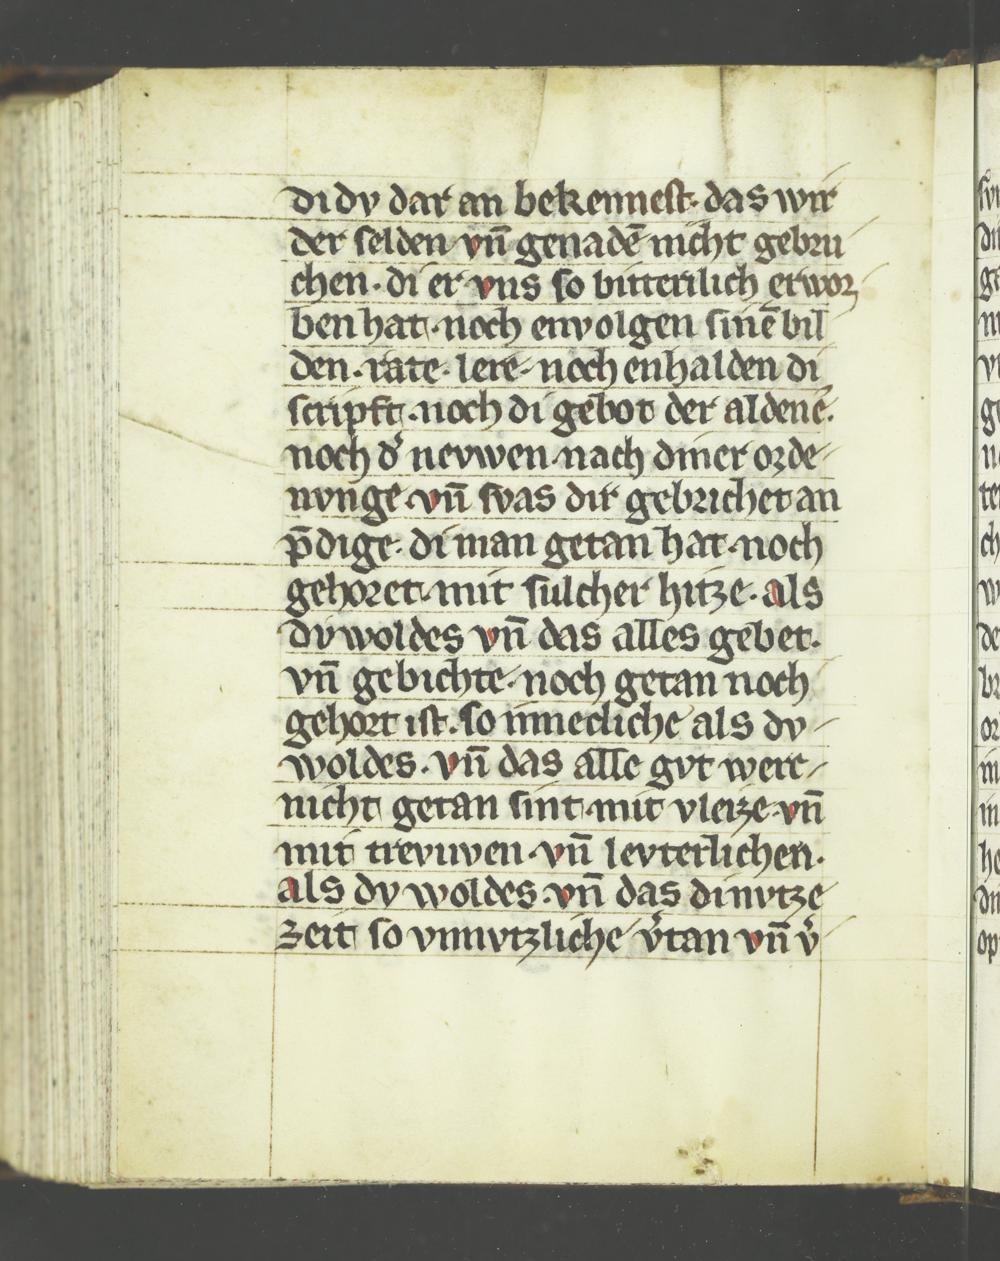 di dv dar an bekennest· das wir
der selden vn̄ genadē nicht gebru
chen· di er vns so bitterlich erwor
ben hat· noch envolgen sinē bil
den· rate· lere· noch enhalden di
scripft· noch di gebot der aldenē·
noch d͛ nevwen nach diner orde
nvnge· vn̄ swas dir gebrichet an
p̄dige· di man getan hat· noch
gehoret· mit sulcher hitze· als
dv woldes vn̄ das alles gebet·
vn̄ gebichte· noch getan noch
gehort ist· so innecliche als dv
woldes· vn̄ das alle gvt werc
nicht getan sint· mit vleize· vn̄
mit trevuven· vn̄ levterlichen·
als dv woldes· vn̄ das di nvtze
zeit so vnnvtzliche v͛tan vn̄ v͛